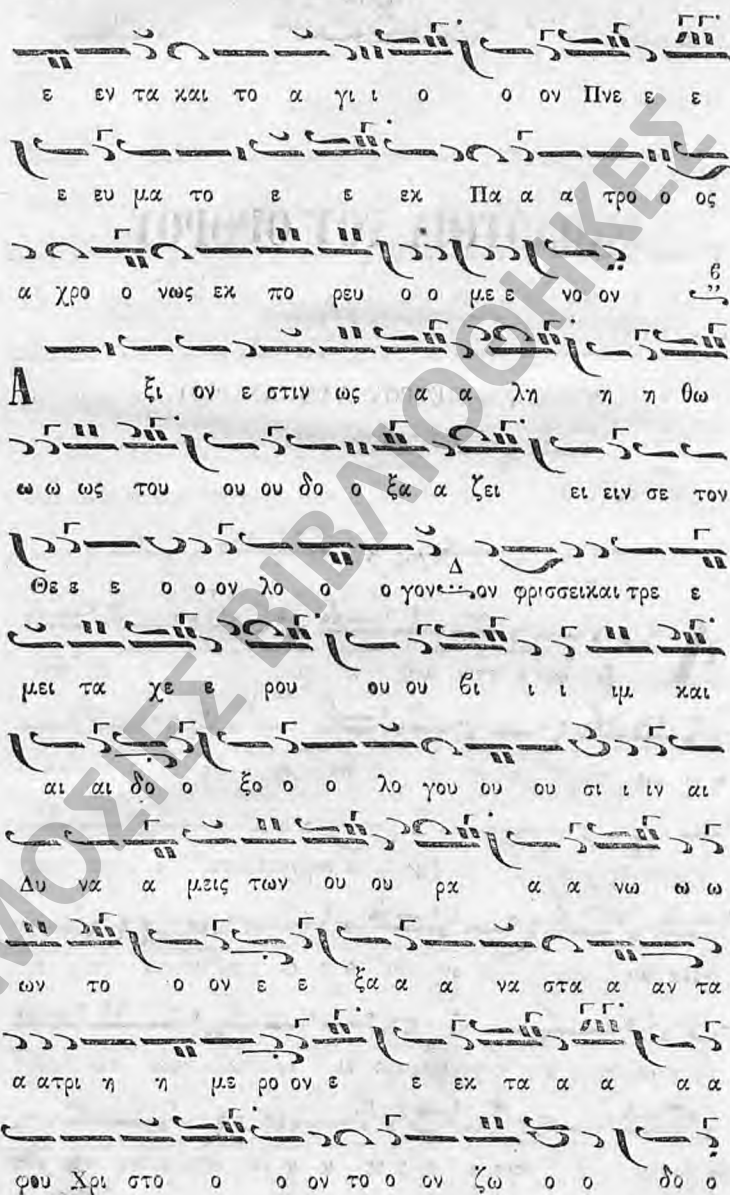 ε εν τα και το α γι ι ο ο ον Πνε ε ε
ε ευ μα το ε ε εκ Πα α α τρο ο ος
α χρο ο νως εκ πο ρευ ο ο με ε νο ον
Α ξι ον ε στιν ως α α λη η η θω
ω ω ως του ου ου δο ο ξα α ζει ει ειν σε τον
Θε ε ε ο ο ον λο ο ο γον Δ ον φρισσει και τρε ε
μει τα χε ε ρου ου ου βι ι ι ιμ και
αι αι δο ο ξο ο ο λο γου ου ου σι ι ιν αι
Δυ να α μεις των ου ου ρα α α νω ω ω
ων το ο ον ε ε ξα α α να στα α αν τα
α α τρι η η με ρο ον ε ε εκ τα α α α α
φου Χρι στο ο ο ον το ο ον ζω ο ο δο ο
ΔΗΜΟΣΙΕΣ ΒΙΒΛΙΟΘΗΚΕΣ